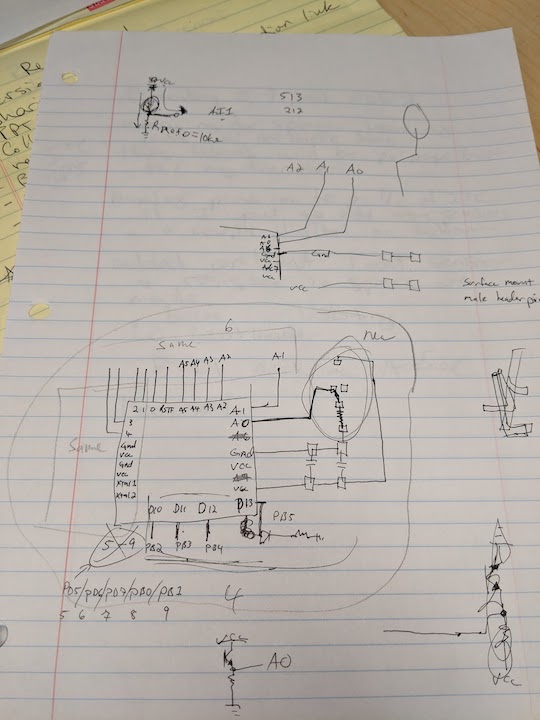 VCC
AI1
RPhoto=10kΩ
513
212
A2 A1 A0
Gnd
VCC
Gnd
VCC
VCC
surface mount
male header pin
6
same
new
A5 A4 A3 A2
A1
2 1 0 RST A5 A4 A3 A2
A1
3
A0
4
Gnd
VCC
Gnd
VCC
Xtal1
Xtal2
Same
GND
VCC
VCC
D10 D11 D12 D13
PB5
5 9
PB2 PB3 PB4
PD5/PD6/PD7/PB0/PB1
5 6 7 8 9
4
VCC
A0
VCC